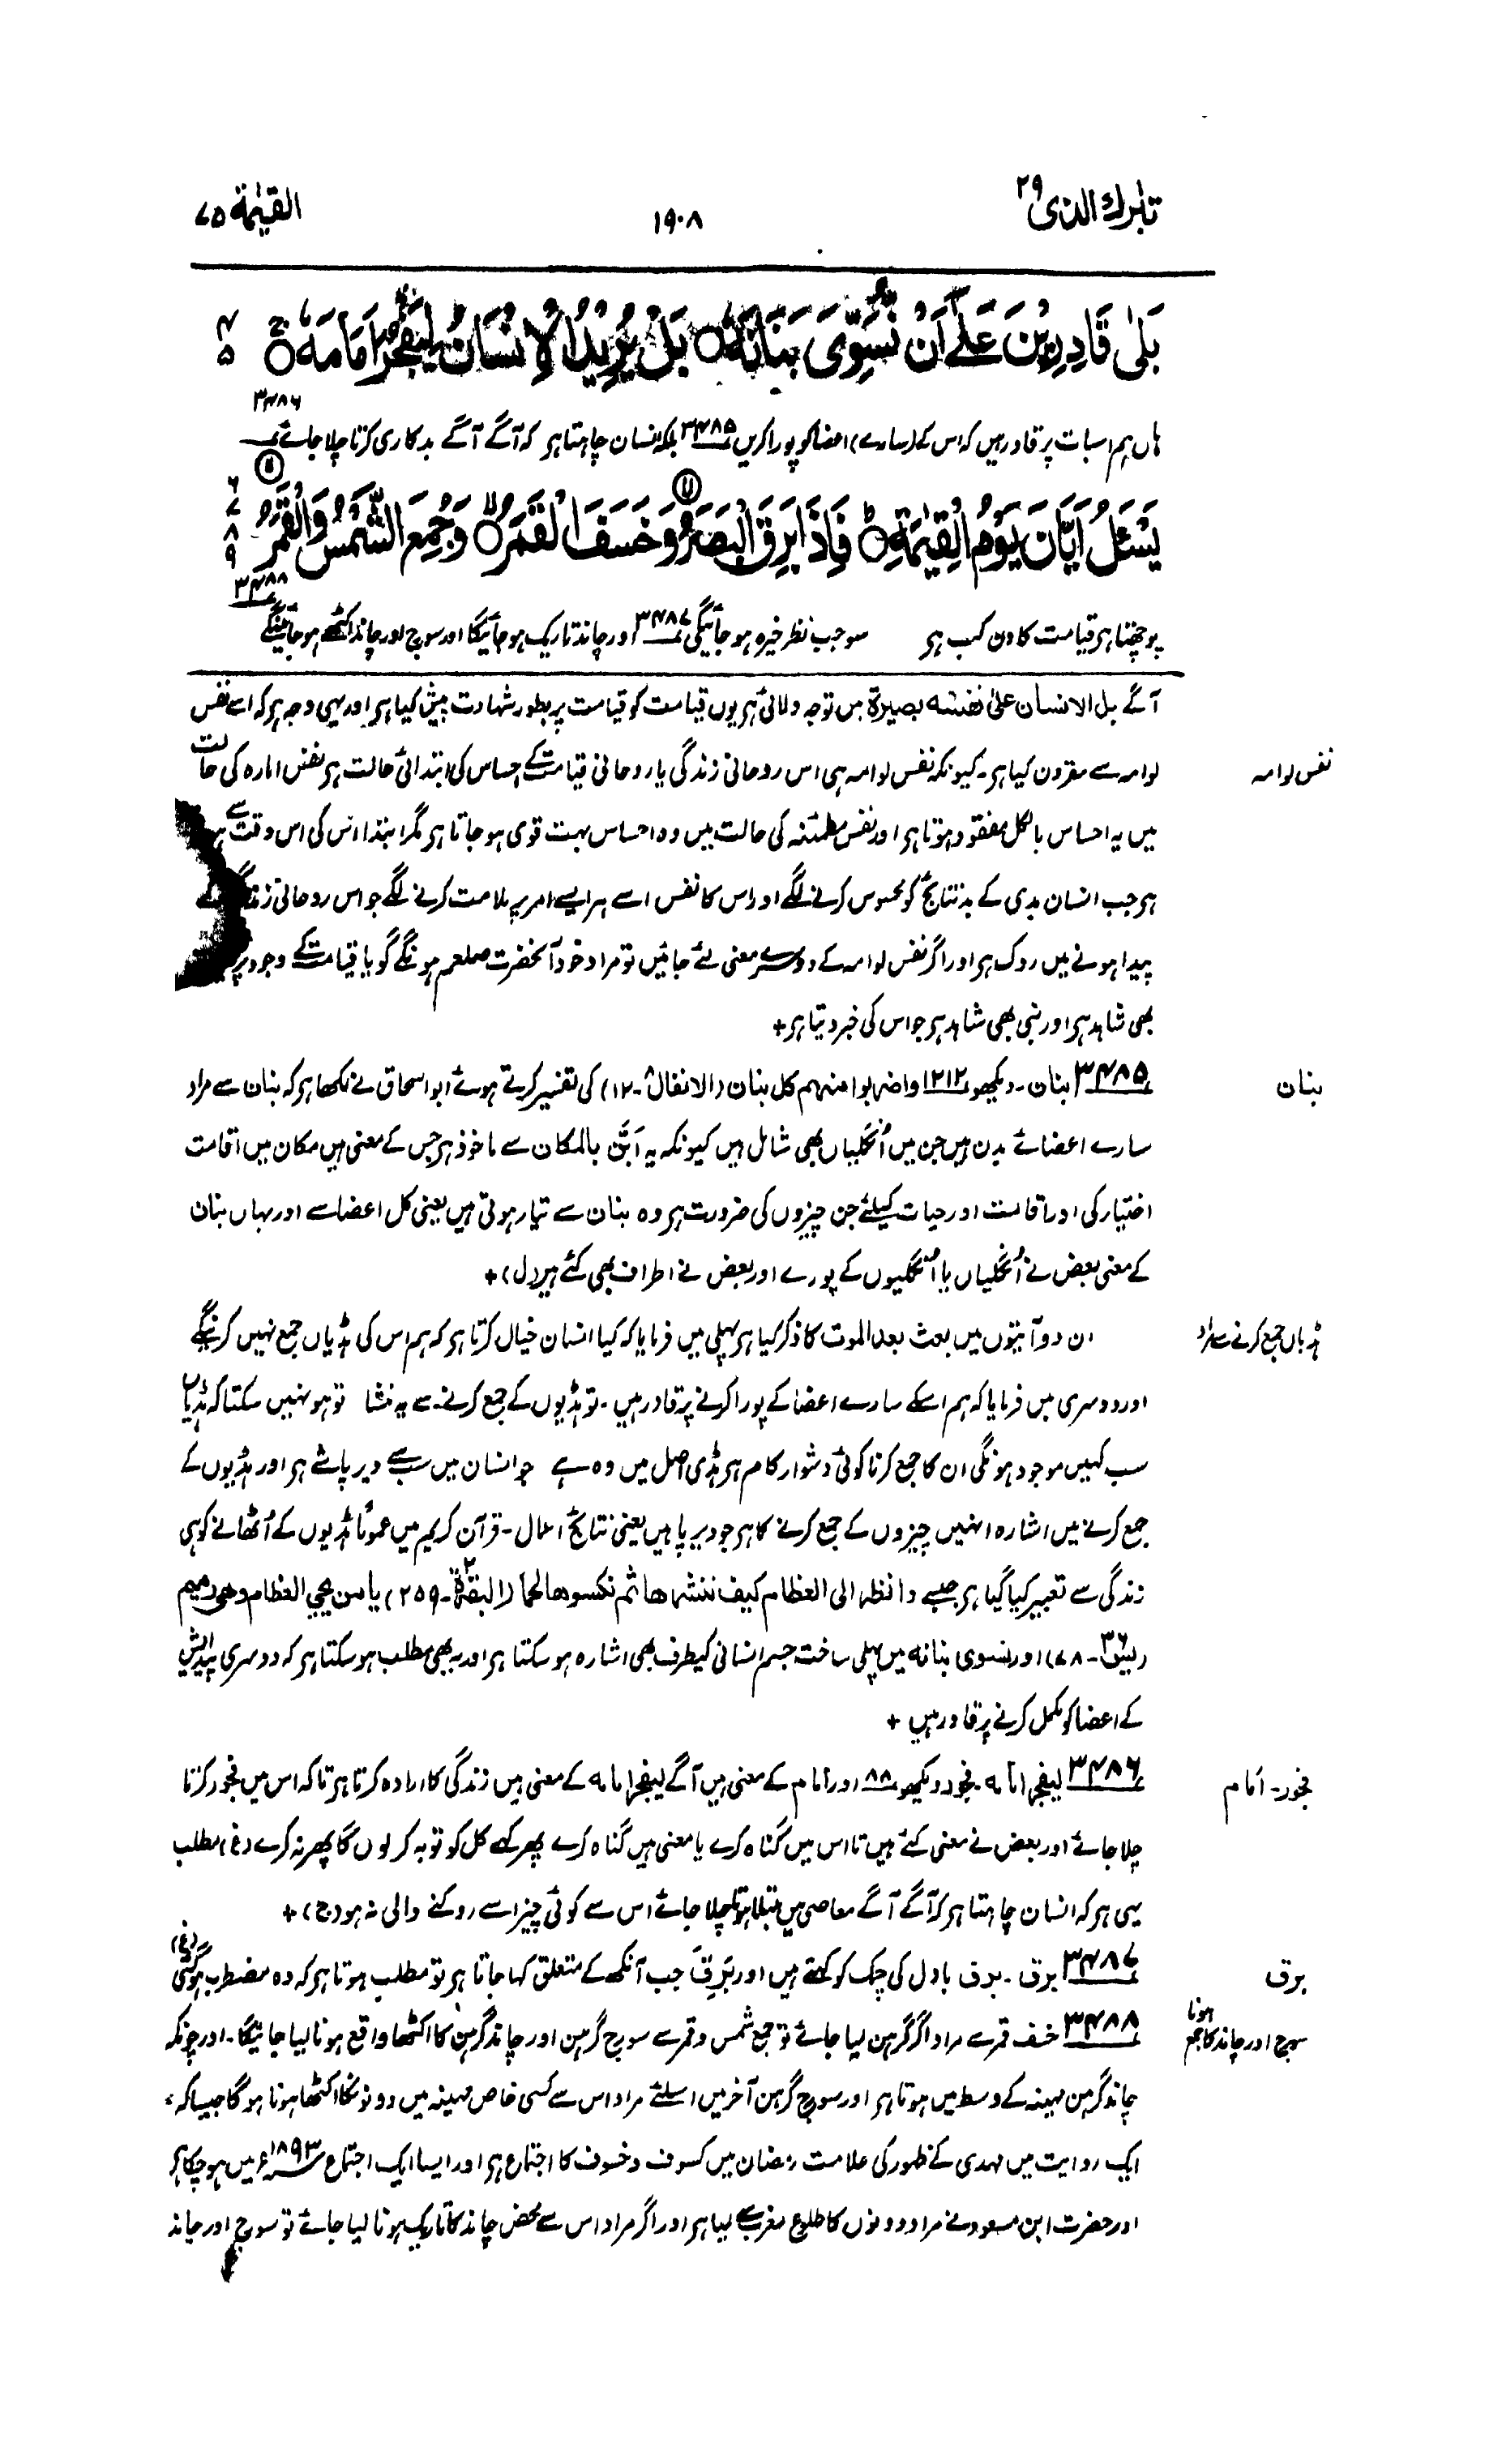 تبٰرك الذی ۲۹
۱۹۰۸
القیٰمة ۷۵
بَلٰی قَادِرِیْنَ عَلٰۤی اَنْ نُّسَوِّیَ بَنَانَهٗ ○ بَلْ یُرِیْدُ الْاِنْسَانُ لِیَفْجُرَ اَمَامَهٗ ○ ۴ ۵
ہاں ہم اسبات پر قادر ہیں کہ اس کے (سارے) اعضا کو پورا کریں ۳۴۸۵ بلکہ انسان چاہتا ہر کہ آگے آگے بدکاری کرتا چلا جائے ۳۴۸۶
یَسْـَٔلُ اَیَّانَ یَوْمُ الْقِیٰمَةِ ○ فَاِذَا بَرِقَ الْبَصَرُ ○ وَخَسَفَ الْقَمَرُ ○ وَجُمِعَ الشَّمْسُ وَالْقَمَرُ ۶ ۷ ۸ ۹
پوچھتا ہر قیامت کا دن کب ہر سو جب نظر خیرہ ہو جائیگی ۳۴۸۷ اور چاند تاریک ہو جائیگا اور سورج اور چاند اکٹھے ہو جائینگے ۳۴۸۸
آگے بل الانسان علیٰ نفسه بصیرة میں توجہ دلائی ہر یوں قیامت کو قیامت پر بطور شہادت پیش کیا ہر اور یہی وجہ ہر کہ اسے نفس
لوامہ سے مقرون کیا ہر۔ کیونکہ نفس لوامہ ہی اس روحانی زندگی یا روحانی قیامت کے احساس کی ابتدائی حالت ہر نفس امارہ کی حالت
نفس لوامہ
میں یہ احساس بالکل مفقود ہوتا ہر اور نفس مطمئنہ کی حالت میں وہ احساس بہت قوی ہو جاتا ہر مگر ابتدا اس کی اس وقت سے
ہر جب انسان بدی کے بد نتائج کو محسوس کرنے لگے اور اس کا نفس اسے ہر ایسے امر پر ملامت کرنے لگے جو اس روحانی زندگی کے
پیدا ہونے میں روک ہر اور اگر نفس لوامہ کے دوسرے معنی لئے جائیں تو مراد خود آنحضرت صلعم ہونگے گویا قیامت کے وجود پر
بھی شاہد ہر اور نبی بھی شاہد ہر جو اس کی خبر دیتا ہر+
۳۴۸۵ بنان۔ دیکھو ۱۲۱۲ واضربوا منہم کل بنان (الانفال ۸-۱۲) کی تفسیر کرتے ہوئے ابو اسحاق نے لکھا ہر کہ بنان سے مراد
بنان
سارے اعضائے بدن ہیں جن میں اُنگلیاں بھی شامل ہیں کیونکہ یہ اَبَنَّ بالمکان سے ماخوذ ہر جس کے معنی ہیں مکان میں اقامت
اختیار کی اور اقامت اور حیات کیلئے جن چیزوں کی ضرورت ہر وہ بنان سے تیار ہوتی ہیں یعنی کل اعضا سے اور یہاں بنان
کے معنی بعض نے اُنگلیاں یا اُنگلیوں کے پورے اور بعض نے اطراف بھی کئے ہیں (ل)+
ان دو آیتوں میں بعث بعد الموت کا ذکر کیا ہر پہلی میں فرمایا کہ کیا انسان خیال کرتا ہر کہ ہم اس کی ہڈیاں جمع نہیں کرینگے
ہڈیاں جمع کرنے سے مراد
اور دوسری میں فرمایا کہ ہم اسکے سارے اعضا کے پورا کرنے پر قادر ہیں۔ تو ہڈیوں کے جمع کرنے سے یہ منشا تو ہو نہیں سکتا کہ ہڈیاں
سب کہیں موجود ہونگی ان کا جمع کرنا کوئی دشوار کام ہر ہڈی اصل میں وہ ہے جو انسان میں سب سے دیر پاشے ہر اور ہڈیوں کے
جمع کرنے میں اشارہ انہیں چیزوں کے جمع کرنے کا ہر جو دیرپا ہیں یعنی نتائج اعمال۔ قرآن کریم میں عموماً ہڈیوں کے اُٹھانے کو ہی
زندگی سے تعبیر کیا گیا ہر جیسے وانظر الی العظام کیف ننشزها ثم نکسوها لحما (البقرة ۲-۲۵۹) یا من یحی العظام وھی رمیم
(یٰسٓ ۳۶-۷۸) اور نسوی بنانه میں پہلی ساخت جسم انسانی کیطرف بھی اشارہ ہو سکتا ہر اور یہ بھی مطلب ہو سکتا ہر کہ دوسری پیدایش
کے اعضا کو مکمل کرنے پر قادر ہیں +
۳۴۸۶ لیفجر امامه۔ فجور دیکھو ۸۸ اور اَمام کے معنی ہیں آگے لیفجر امامه کے معنی ہیں زندگی کا ارادہ کرتا ہر تاکہ اس میں فجور کرتا
فجور۔ اَمام
چلا جائے اور بعض نے معنی کئے ہیں تا اس میں گناہ کرے یا معنی ہیں گناہ کرے پھر کہے کل کو توبہ کر لوں گا پھر نہ کرے (غ) مطلب
یہی ہر کہ انسان چاہتا ہر کہ آگے آگے معاصی میں مبتلا ہوتا چلا جائے اس سے کوئی چیز اسے روکنے والی نہ ہو (ج)+
۳۴۸۷ برق۔ برق بادل کی چمک کو کہتے ہیں اور بَرِقَ جب آنکھ کے متعلق کہا جاتا ہر تو مطلب ہوتا ہر کہ وہ مضطرب ہو گئی (غ)
برق
۳۴۸۸ خسف قمر سے مراد اگر گرہن لیا جائے تو جمع شمس و قمر سے سورج گرہن اور چاند گرہن کا اکٹھا واقع ہونا لیا جائیگا۔ اور چونکہ
سورج اور چاند کا جمع ہونا
چاند گرہن مہینہ کے وسط میں ہوتا ہر اور سورج گرہن آخر میں اسلئے مراد اس سے کسی خاص مہینہ میں دونوں کا اکٹھا ہونا ہو گا جیسا کہ
ایک روایت میں مہدی کے ظہور کی علامت رمضان میں کسوف و خسوف کا اجتماع ہر اور ایسا ایک اجتماع ۱۸۹۳ء میں ہو چکا ہر
اور حضرت ابن مسعود نے مراد دونوں کا طلوع مغرب سے لیا ہر اور اگر مراد اس سے محض چاند کا تاریک ہونا لیا جائے تو سورج اور چاند